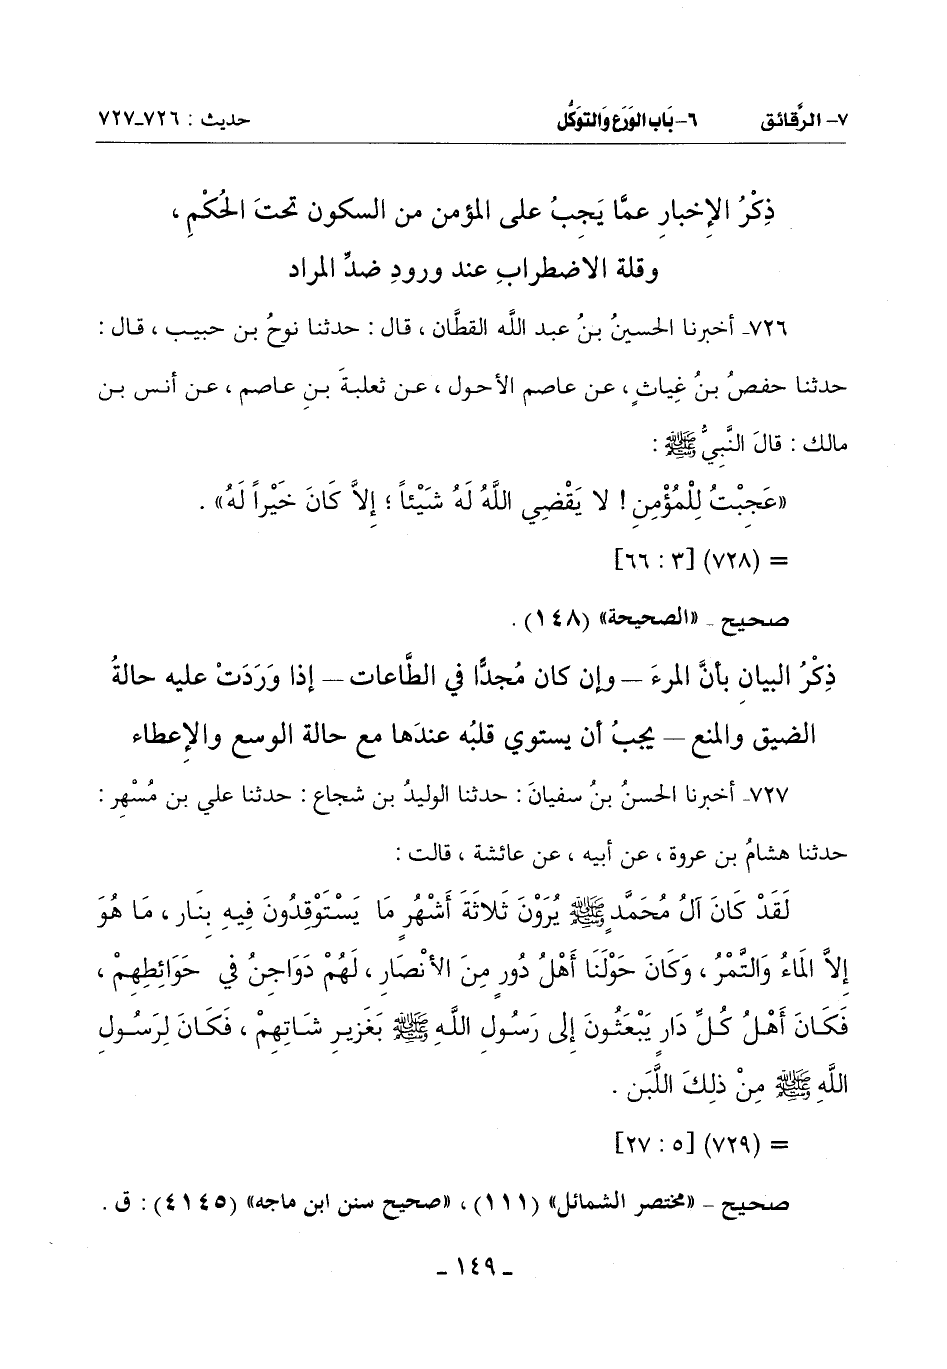 ٧- الرَّقائق ٦-بَاب الوَرَع وَالتوَكُّل حديث : ٧٢٦-٧٢٧
ذِكْرُ الإخبارِ عمَّا يَجِبُ على المؤمن من السكون تحتَ الحُكْمِ ،
وقلة الاضطرابِ عند ورودِ ضدِّ المراد
٧٢٦- أخبرنا الحسينُ بنُ عبد اللَّه القطَّان ، قال : حدثنا نوحُ بن حبيب ، قال :
حدثنا حفصُ بنُ غِياثٍ ، عن عاصم الأحول ، عن ثعلبةَ بنِ عاصم ، عن أنس بن
مالك : قالَ النَّبِيُّ ﷺ :
«عَجِبْتُ لِلْمُؤْمِنِ ! لا يَقْضِي اللَّهُ لَهُ شَيْئاً ؛ إلاَّ كَانَ خَيْراً لَهُ» .
= (٧٢٨) [٣ : ٦٦]
صحيح - «الصحيحة» (١٤٨) .
ذِكْرُ البيان بأنَّ المرءَ – وإن كان مُجدًّا في الطَّاعات – إذا وَرَدَتْ عليه حالةُ
الضيقِ والمنع – يجبُ أن يستوي قلبُه عندَها مع حالة الوسع والإعطاء
٧٢٧- أخبرنا الحسنُ بنُ سفيانَ : حدثنا الوليدُ بن شجاع : حدثنا علي بن مُسْهِر :
حدثنا هشامُ بن عروة ، عن أبيه ، عن عائشة ، قالت :
لَقَدْ كَانَ آلُ مُحَمَّدٍ ﷺ يُرَوْنَ ثَلاثَةَ أَشْهُرٍ مَا يَسْتَوْقِدُونَ فِيهِ بِنَارٍ ، مَا هُوَ
إلاَّ المَاءُ وَالتَّمْرُ ، وَكَانَ حَوْلَنَا أَهْلُ دُورٍ مِنَ الأنْصَارِ ، لَهُمْ دَوَاجِنُ في حَوَائِطِهِمْ ،
فَكَانَ أَهْلُ كُلِّ دَارٍ يَبْعَثُونَ إلى رَسُولِ اللَّهِ ﷺ بَغَزِيرِ شَاتِهِمْ ، فَكَانَ لِرَسُولِ
اللَّهِ ﷺ مِنْ ذلِكَ اللَّبَنِ .
= (٧٢٩) [٥ : ٢٧]
صحيح – «مختصر الشمائل» (١١١) ، «صحيح سنن ابن ماجه» (٤١٤٥) : ق .
- ١٤٩ -